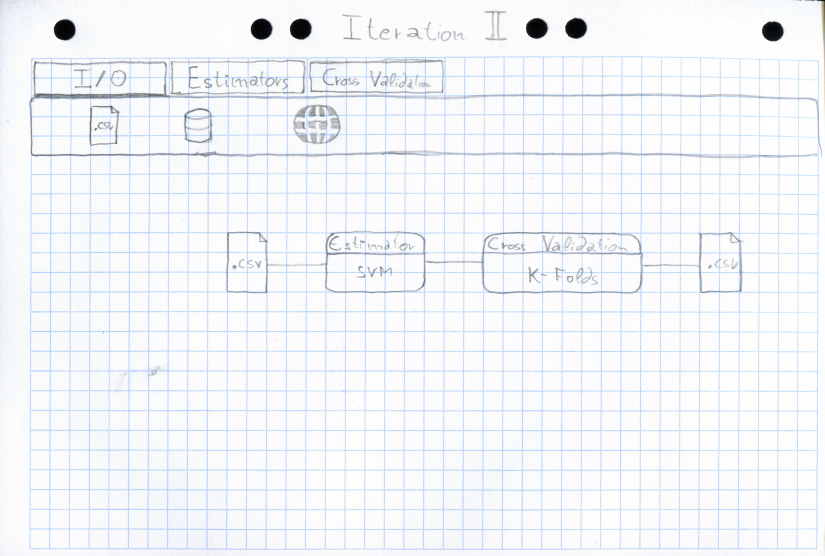 Iteration II
I/O Estimators Cross Validation
.csv
Estimator Cross Validation
.csv SVM K-Folds .csv